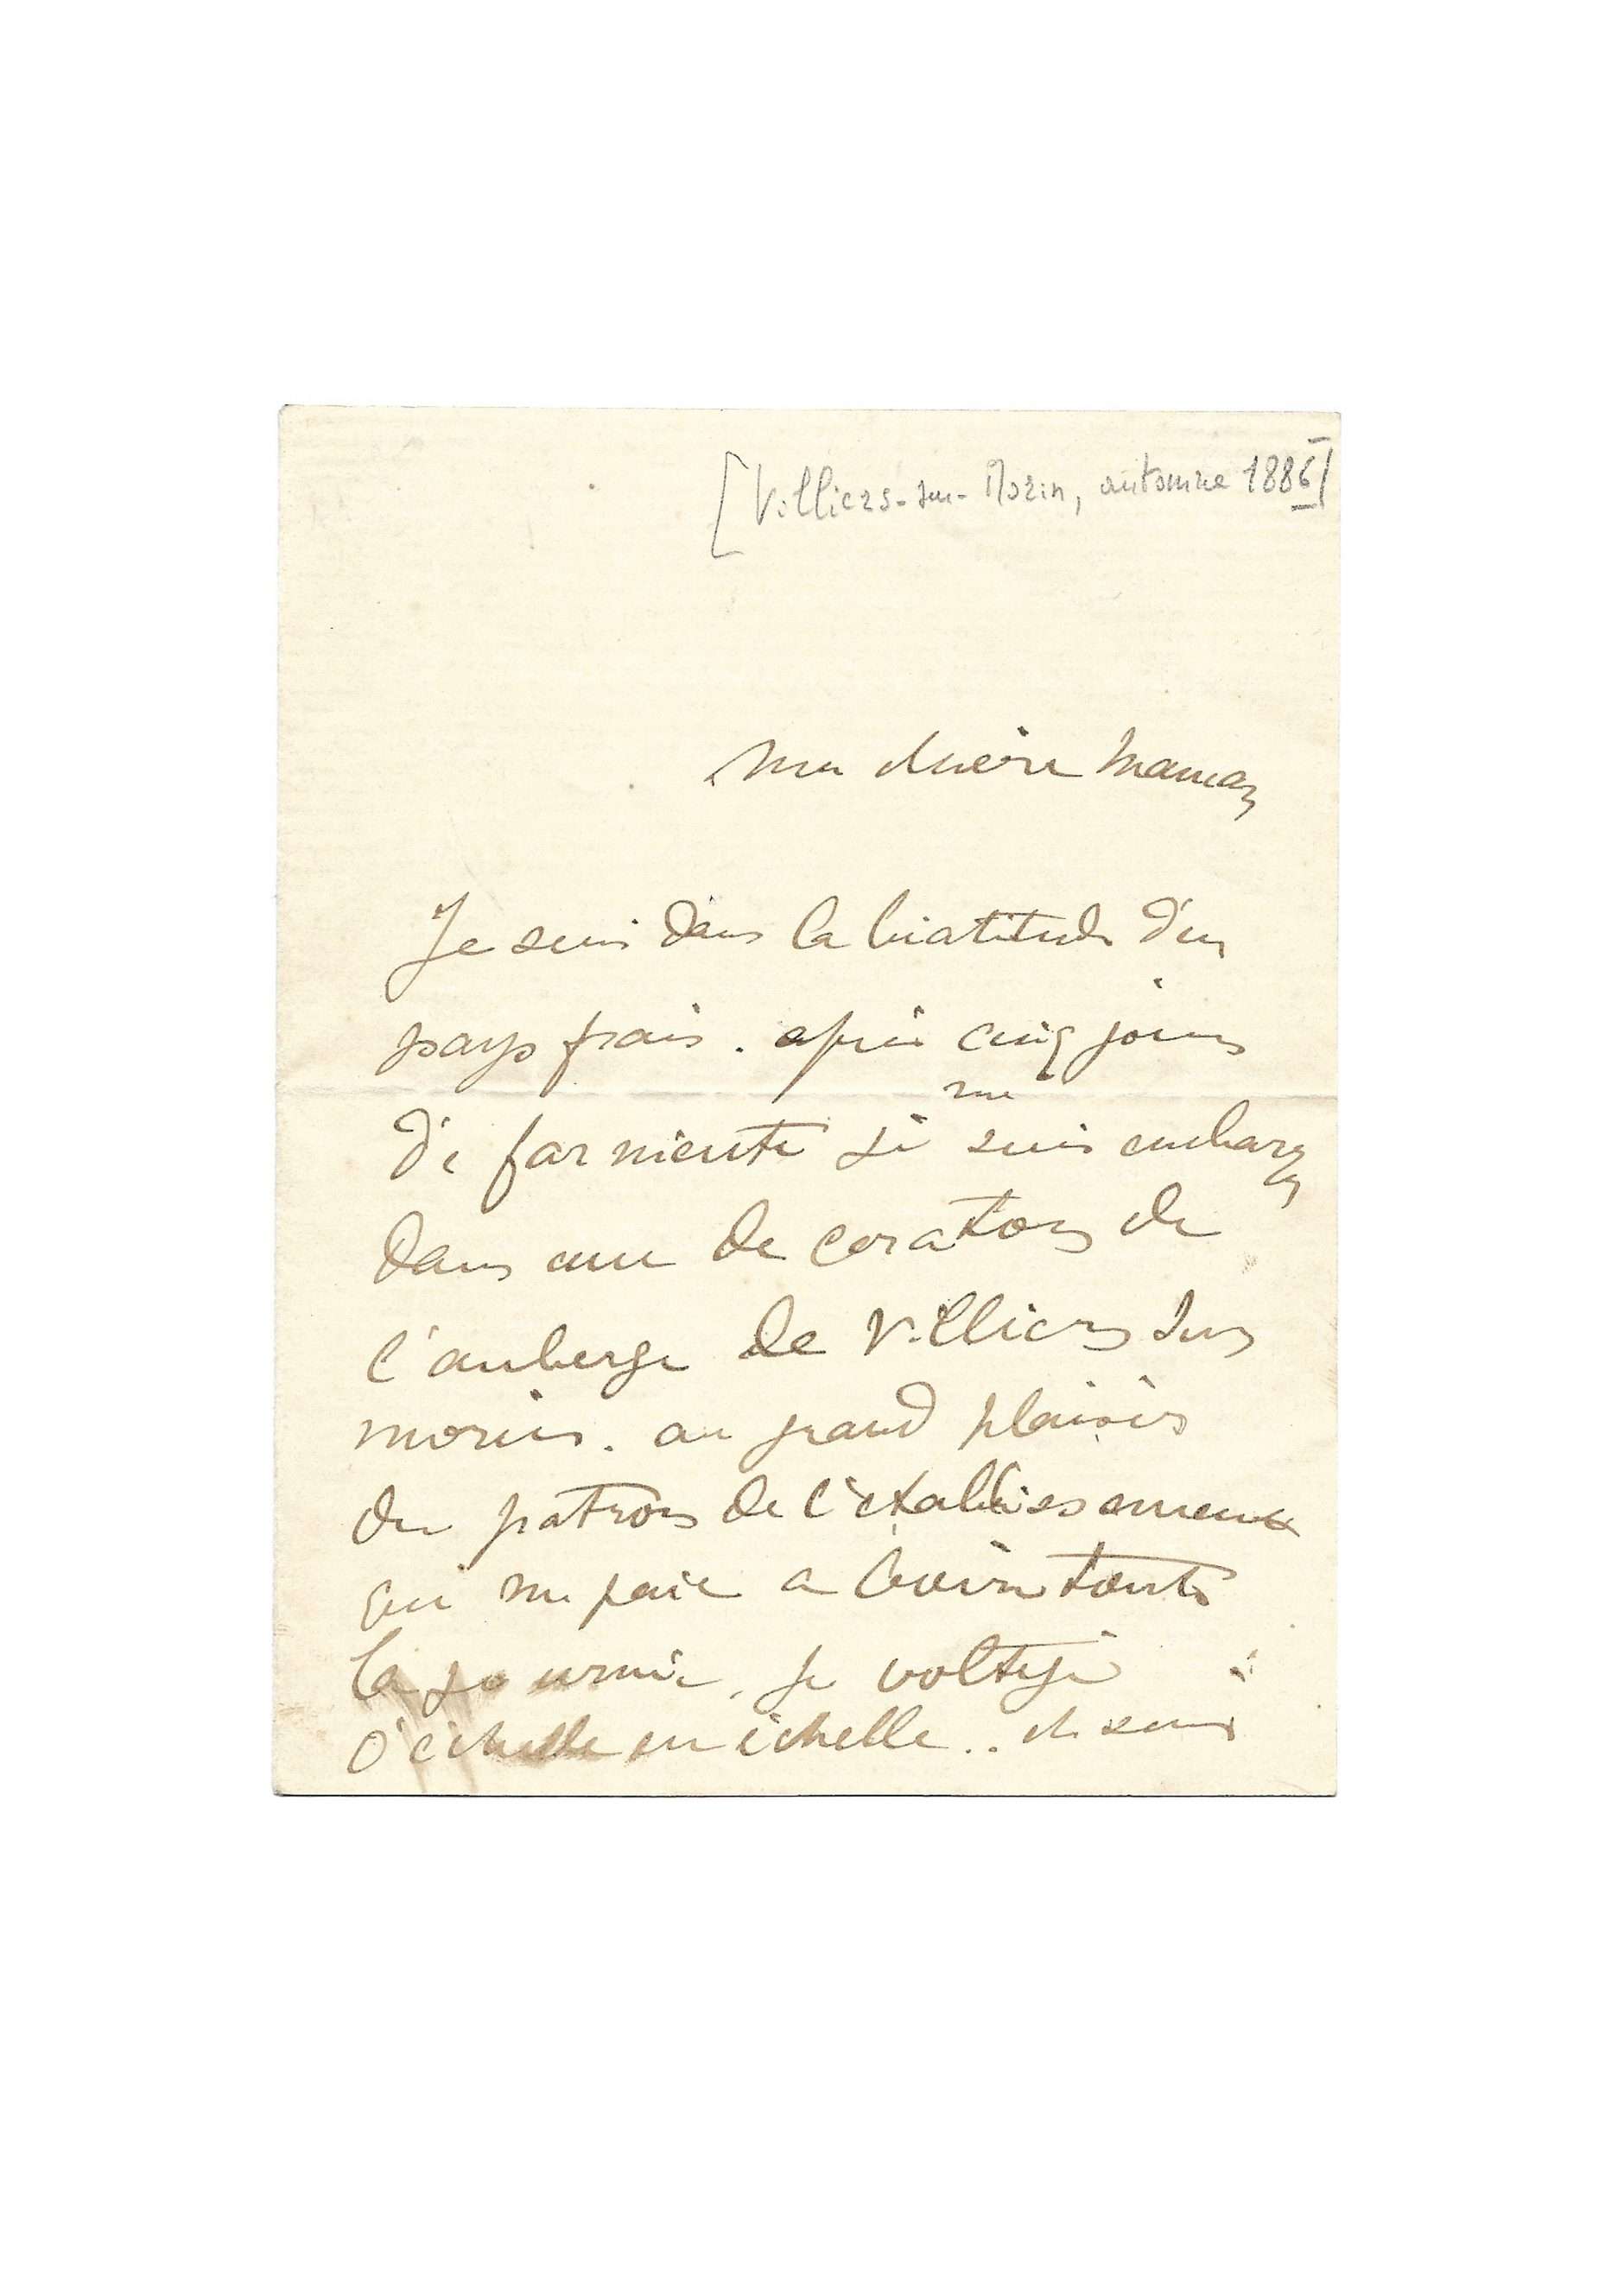 [Villiers-sur-Morin, automne 1886]
Ma chère Maman
Je suis dans la béatitude d'un
pays frais. après cinq jours
de farniente je
me
suis embarq
é
dans une decoration de
l'auberge de Villiers sur
morin. au grand plaisir
du patron de l'établissement
qui me paie a boire toute
la journée, je voltige
d'échelle en échelle.. et suis